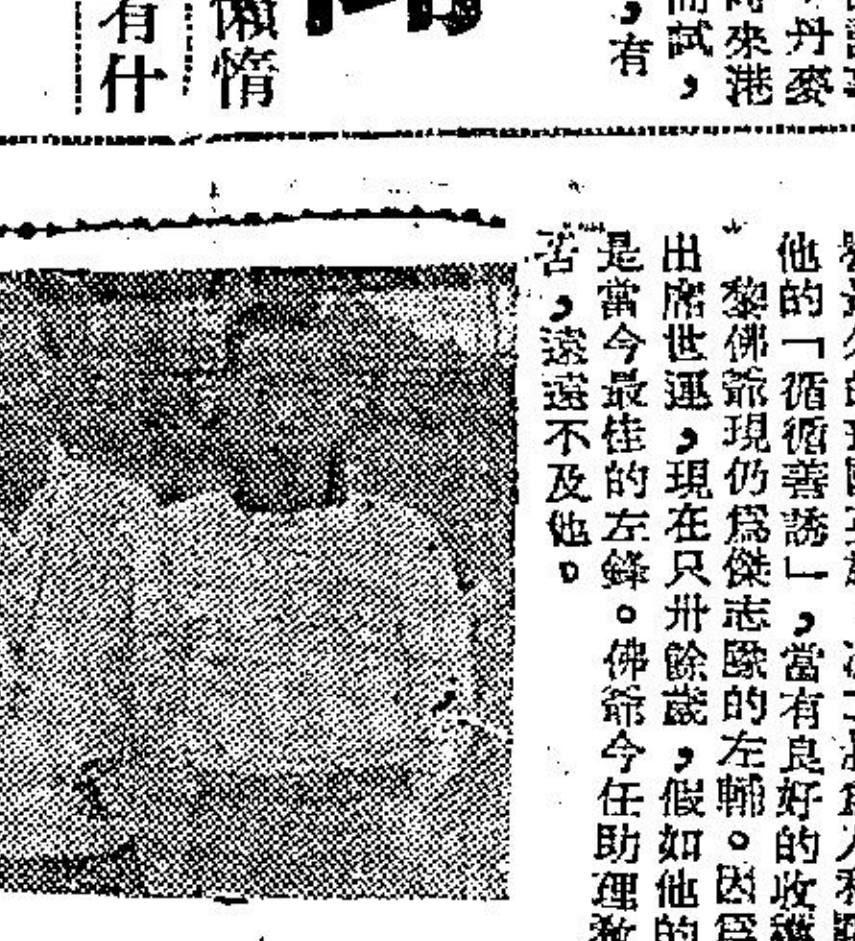 丹麥
來港
而試，
，有
懶惰
有什
他的「循循善誘」，當有良好的收穫
黎佛爺現仍爲傑志隊的左輔。因爲
出席世運，現在只卅餘歲，假如他的
是當今最佳的左鋒。佛爺今任助理教
苦，遠遠不及他。